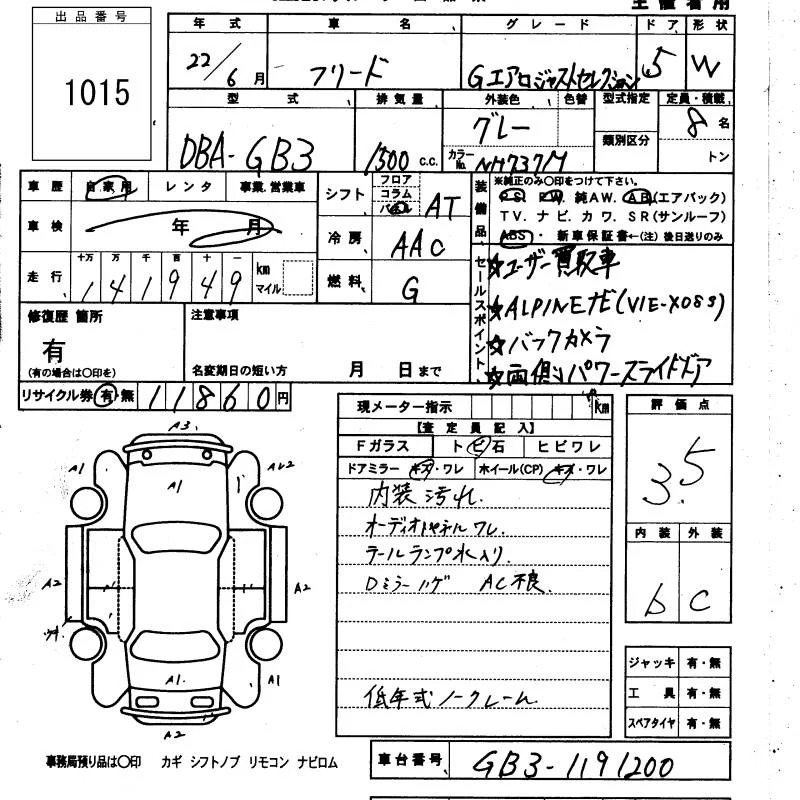 出品番号
1015
年式 車名 グレード ドア 形状
22/6月 フリード Gエアロジャストセレクション 5 W
型式 排気量 外装色 色替 型式指定 定員・積載
DBA-GB3 1500 c.c. グレー 類別区分 8名
カラーNo. NH737M トン
車歴 自家用 レンタ 事業.営業車
車検 年 月
走行 十万 万 千 百 十 一
141949 km マイル
シフト フロア コラム パネル AT
冷房 AAC
燃料 G
装備品 ※純正のみ〇印をつけて下さい。
P.S. P.W. 純AW. A.B.(エアバック)
TV. ナビ. カワ. SR(サンルーフ)
ABS・ 新車保証書←(注) 後日送りのみ
セールスポイント
☆ユーザー買取車
☆ALPINEナビ(VIE-X088)
☆バックカメラ
☆両側パワースライドドア
修復歴 箇所
有
(有の場合は〇印を)
注意事項
名変期日の短い方 月 日まで
リサイクル券 有・無 11860円
現メーター指示 km
【査定員記入】
Fガラス トビ石 ヒビワレ
ドアミラー キズ・ワレ ホイール(CP) キズ・ワレ
内装汚れ.
オーディオパネルワレ.
テールランプ水入り.
Dミラーハゲ AC不良.
低年式ノークレーム
評価点
3.5
内装 外装
b C
ジャッキ 有・無
工具 有・無
スペアタイヤ 有・無
A3
A1 A1 AU2
A2 A2
A1. A1
A2
事務局預り品は〇印 カギ シフトノブ リモコン ナビロム
車台番号 GB3-1191200